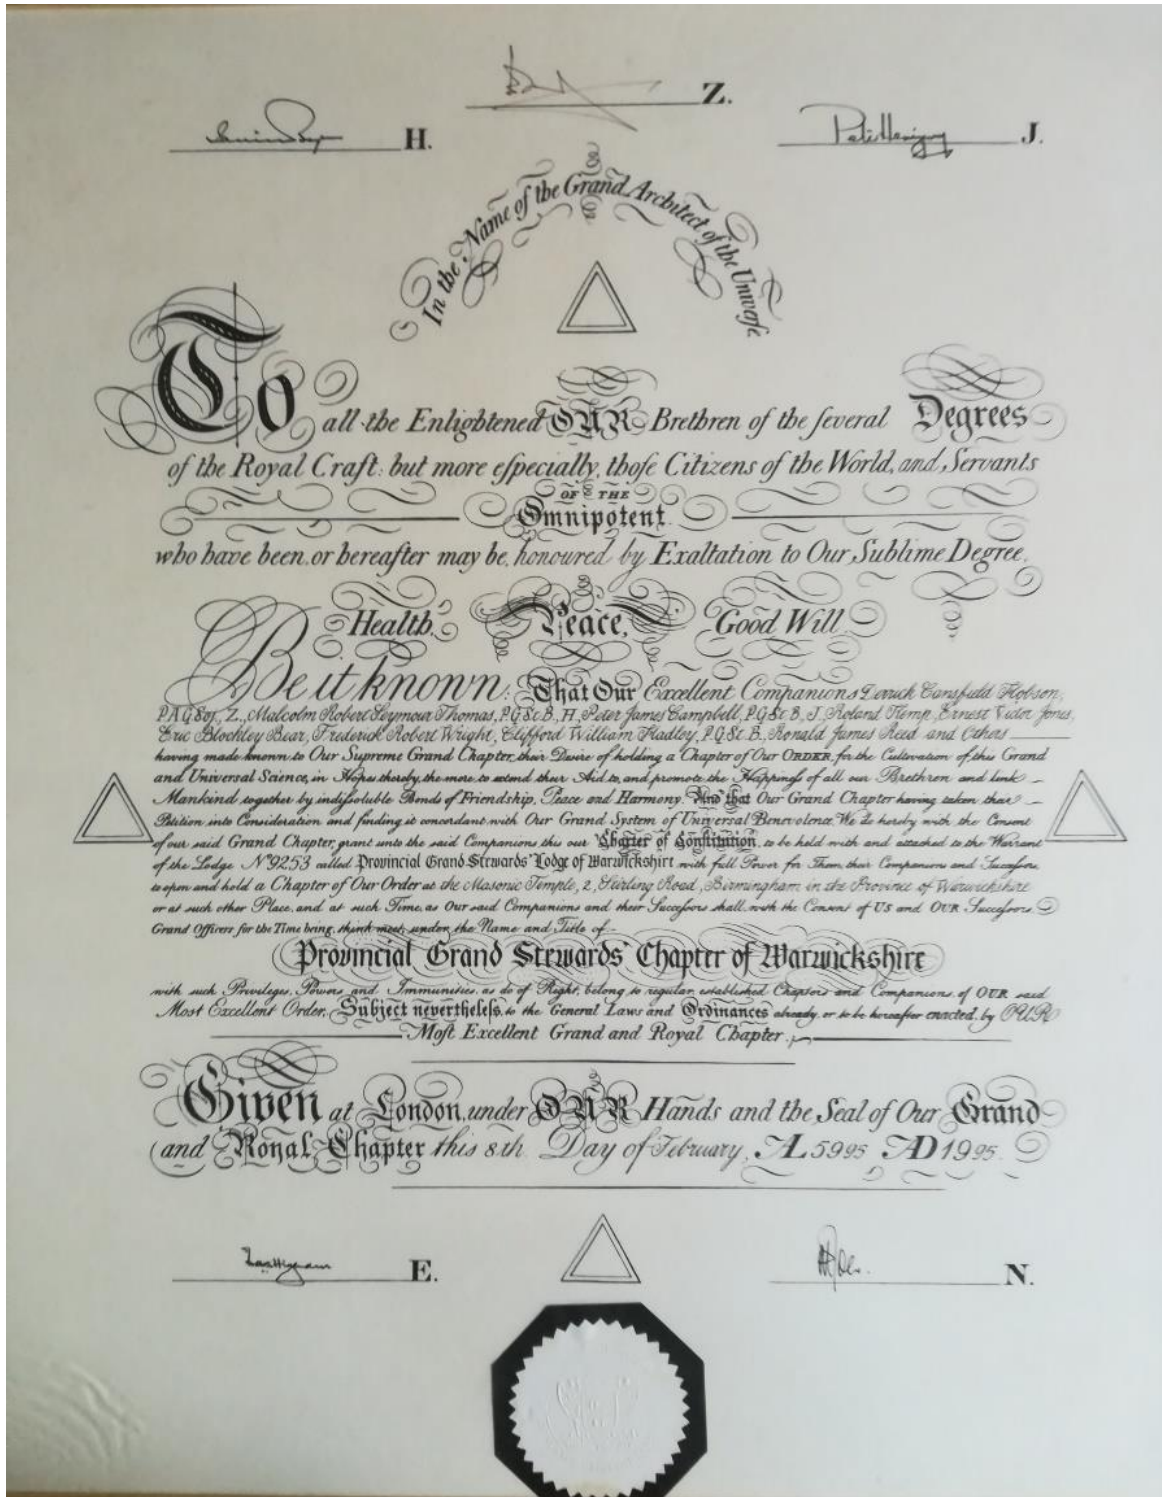 Z.
H.
J.
In the Name of the Grand Architect of the Universe
To all the Enlightened OUR Brethren of the ſeveral Degrees
of the Royal Craft: but more eſpecially, thoſe Citizens of the World, and Servants
OF THE
Omnipotent
who have been or hereafter may be, honoured by Exaltation to Our Sublime Degree,
Health, Peace, Good Will
Be it known: That Our Excellent Companions Derrick Cansfield Hobson,
P.A.G.Soj., Z., Malcolm Robert Seymour Thomas, P.G.St.B., H., Peter James Campbell, P.G.St.B., J., Roland Hemp, Ernest Victor Jones,
Eric Blockley Bear, Frederick Robert Wright, Clifford William Hadley, P.G.St.B., Ronald James Reed and Others
having made known to Our Supreme Grand Chapter, their Desire of holding a Chapter of Our ORDER, for the Cultivation of this Grand
and Universal Science, in Hopes thereby, the more to extend their Aid to, and promote the Happineſs of all our Brethren and link
Mankind together by indiſsoluble Bonds of Friendship, Peace and Harmony. And that Our Grand Chapter having taken their
Petition into Consideration and finding it concordant with Our Grand System of Universal Benevolence, We do hereby with the Consent
of our said Grand Chapter, grant unto the said Companions this our Charter of Constitution, to be held with and attached to the Warrant
of the Lodge No 9253 called Provincial Grand Stewards' Lodge of Warwickshire with full Power for Them, their Companions and Succeſsors
to open and hold a Chapter of Our Order at the Masonic Temple, 2, Stirling Road, Birmingham in the Province of Warwickshire
or at such other Place, and at such Time, as Our said Companions and their Succeſsors shall, with the Consent of US and OUR Succeſsors
Grand Officers for the Time being, think meet, under the Name and Title of
Provincial Grand Stewards' Chapter of Warwickshire
with such Privileges, Powers and Immunities, as do of Right, belong to regular established Chapters and Companions, of OUR said
Most Excellent Order, Subject nevertheleſs, to the General Laws and Ordinances already, or to be hereafter enacted, by OUR
Moſt Excellent Grand and Royal Chapter.
Given at London, under OUR Hands and the Seal of Our Grand
and Royal Chapter this 8th Day of February, AL 5995 AD 1995.
E.
N.